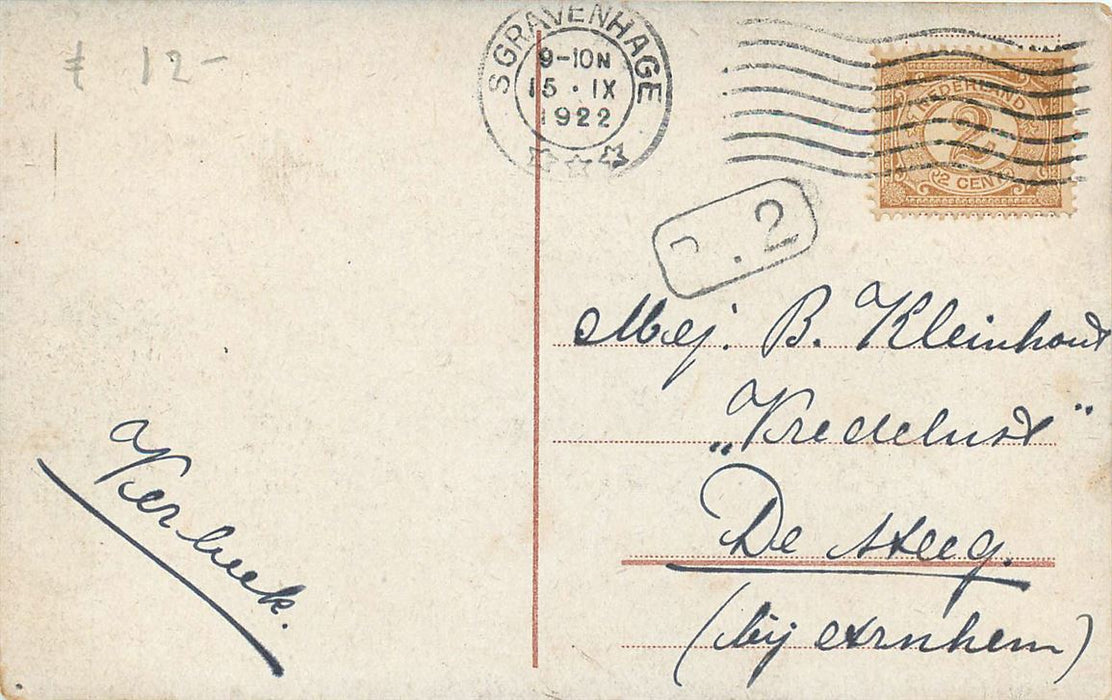 12-
'S GRAVENHAGE
9-10N
15 · IX
1922
NEDERLAND
2
2 CENT
P. 2
Mej. B. Kleinhout
„Vredelust"
De Steeg.
(bij Arnhem)
Verbeek.